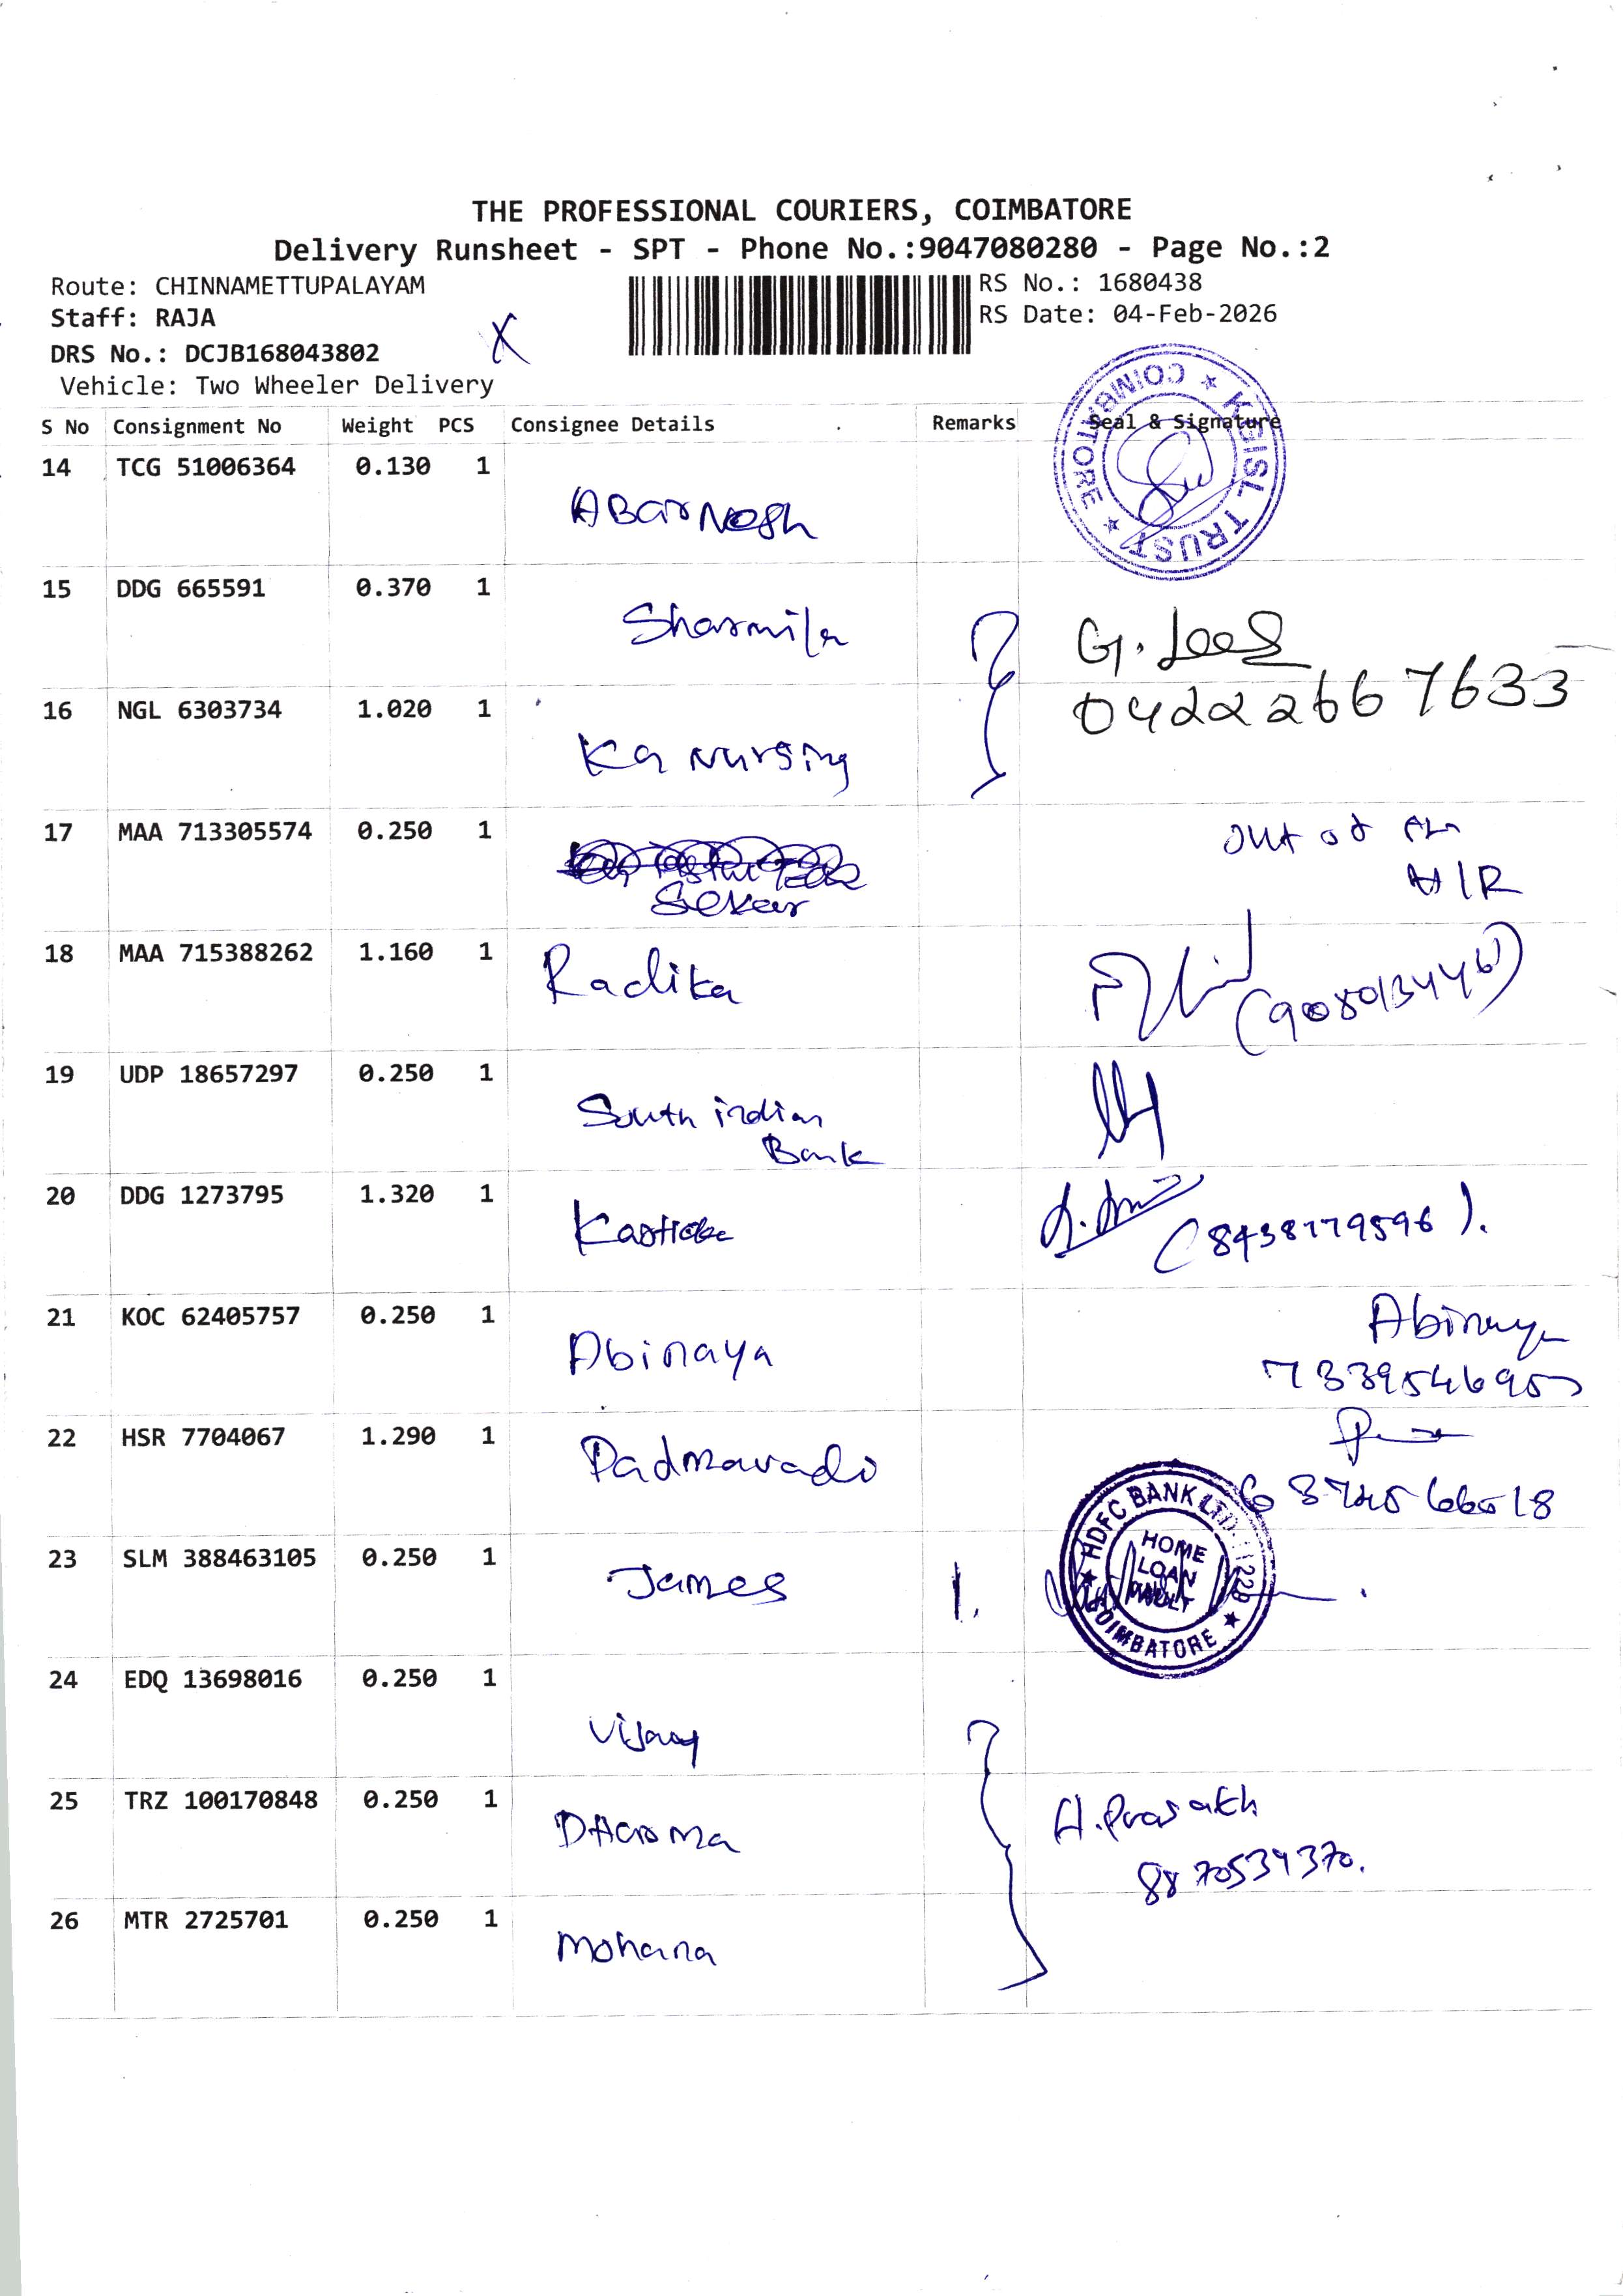 THE PROFESSIONAL COURIERS, COIMBATORE
Delivery Runsheet - SPT - Phone No.:9047080280 - Page No.:2
Route: CHINNAMETTUPALAYAM
RS No.: 1680438
Staff: RAJA
RS Date: 04-Feb-2026
X
DRS No.: DCJB168043802
Vehicle: Two Wheeler Delivery
S No Consignment No Weight PCS Consignee Details Remarks Seal & Signature
KGISL TRUST ★ COIMBATORE ★
14 TCG 51006364 0.130 1
ABarNesh
15 DDG 665591 0.370 1
Sharmila
G.
04222667633
16 NGL 6303734 1.020 1
KG Nursing
17 MAA 713305574 0.250 1 out of
Sekar
18 MAA 715388262 1.160 1 Radika
19 UDP 18657297 0.250 1
South indian
Bank
20 DDG 1273795 1.320 1
(8438779596).
21 KOC 62405757 0.250 1 Abinaya
Abinaya
22 HSR 7704067 1.290 1
Padmavadi
★ HDFC BANK LTD.
HOME
LOAN
VAULT
COIMBATORE ★
23 SLM 388463105 0.250 1
James 1.
24 EDQ 13698016 0.250 1
Vijay
25 TRZ 100170848 0.250 1 H.Prasath
DHarma
8870539370.
26 MTR 2725701 0.250 1
Mohana